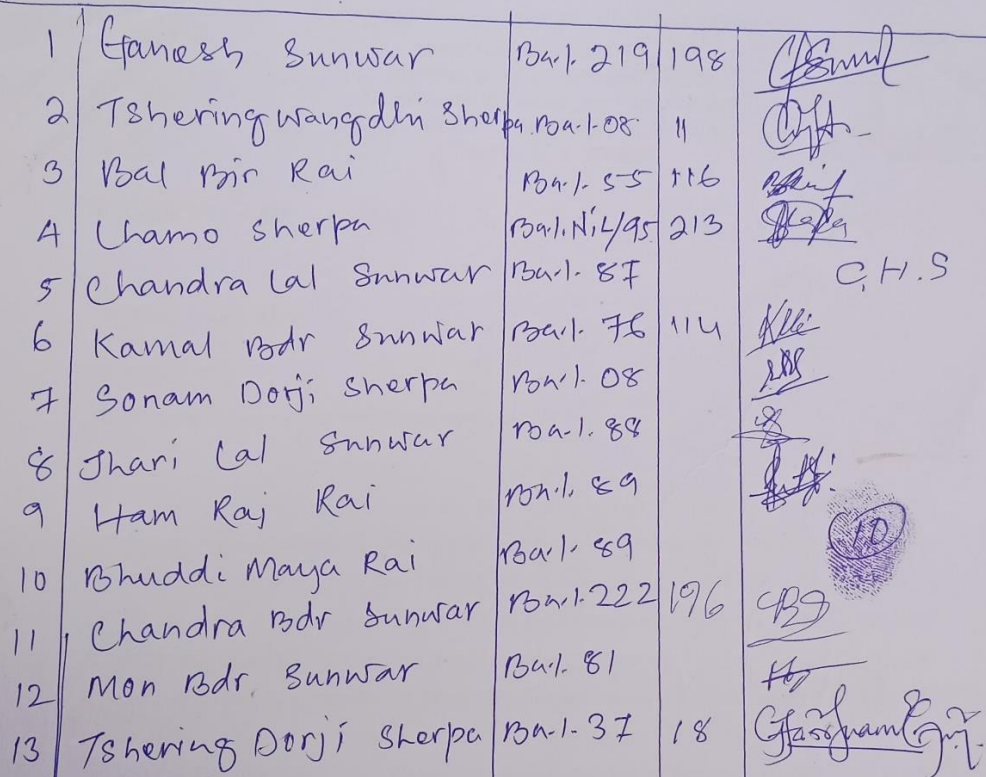 1 Ganesh Sunwar Ba.1. 219 198
2 Tshering wangdhi Sherpa Ba.1.08 11
3 Bal Bir Rai Ba.1. 55 116
4 Chamo Sherpa Ba.1.NiL/95 213
5 Chandra Lal Sunwar Ba.1. 87 C.H.S
6 Kamal Bdr Sunwar Ba.1. 76 114
7 Sonam Dorji Sherpa Ba.1. 08
8 Jhari Lal Sunwar Ba.1. 88
9 Ham Raj Rai Ba.1. 89
10 Bhuddi Maya Rai Ba.1. 89 10
11 Chandra Bdr Sunwar Ba.1.222 196
12 Mon Bdr. Sunwar Ba.1. 81
13 Tshering Dorji Sherpa Ba.1.37 18